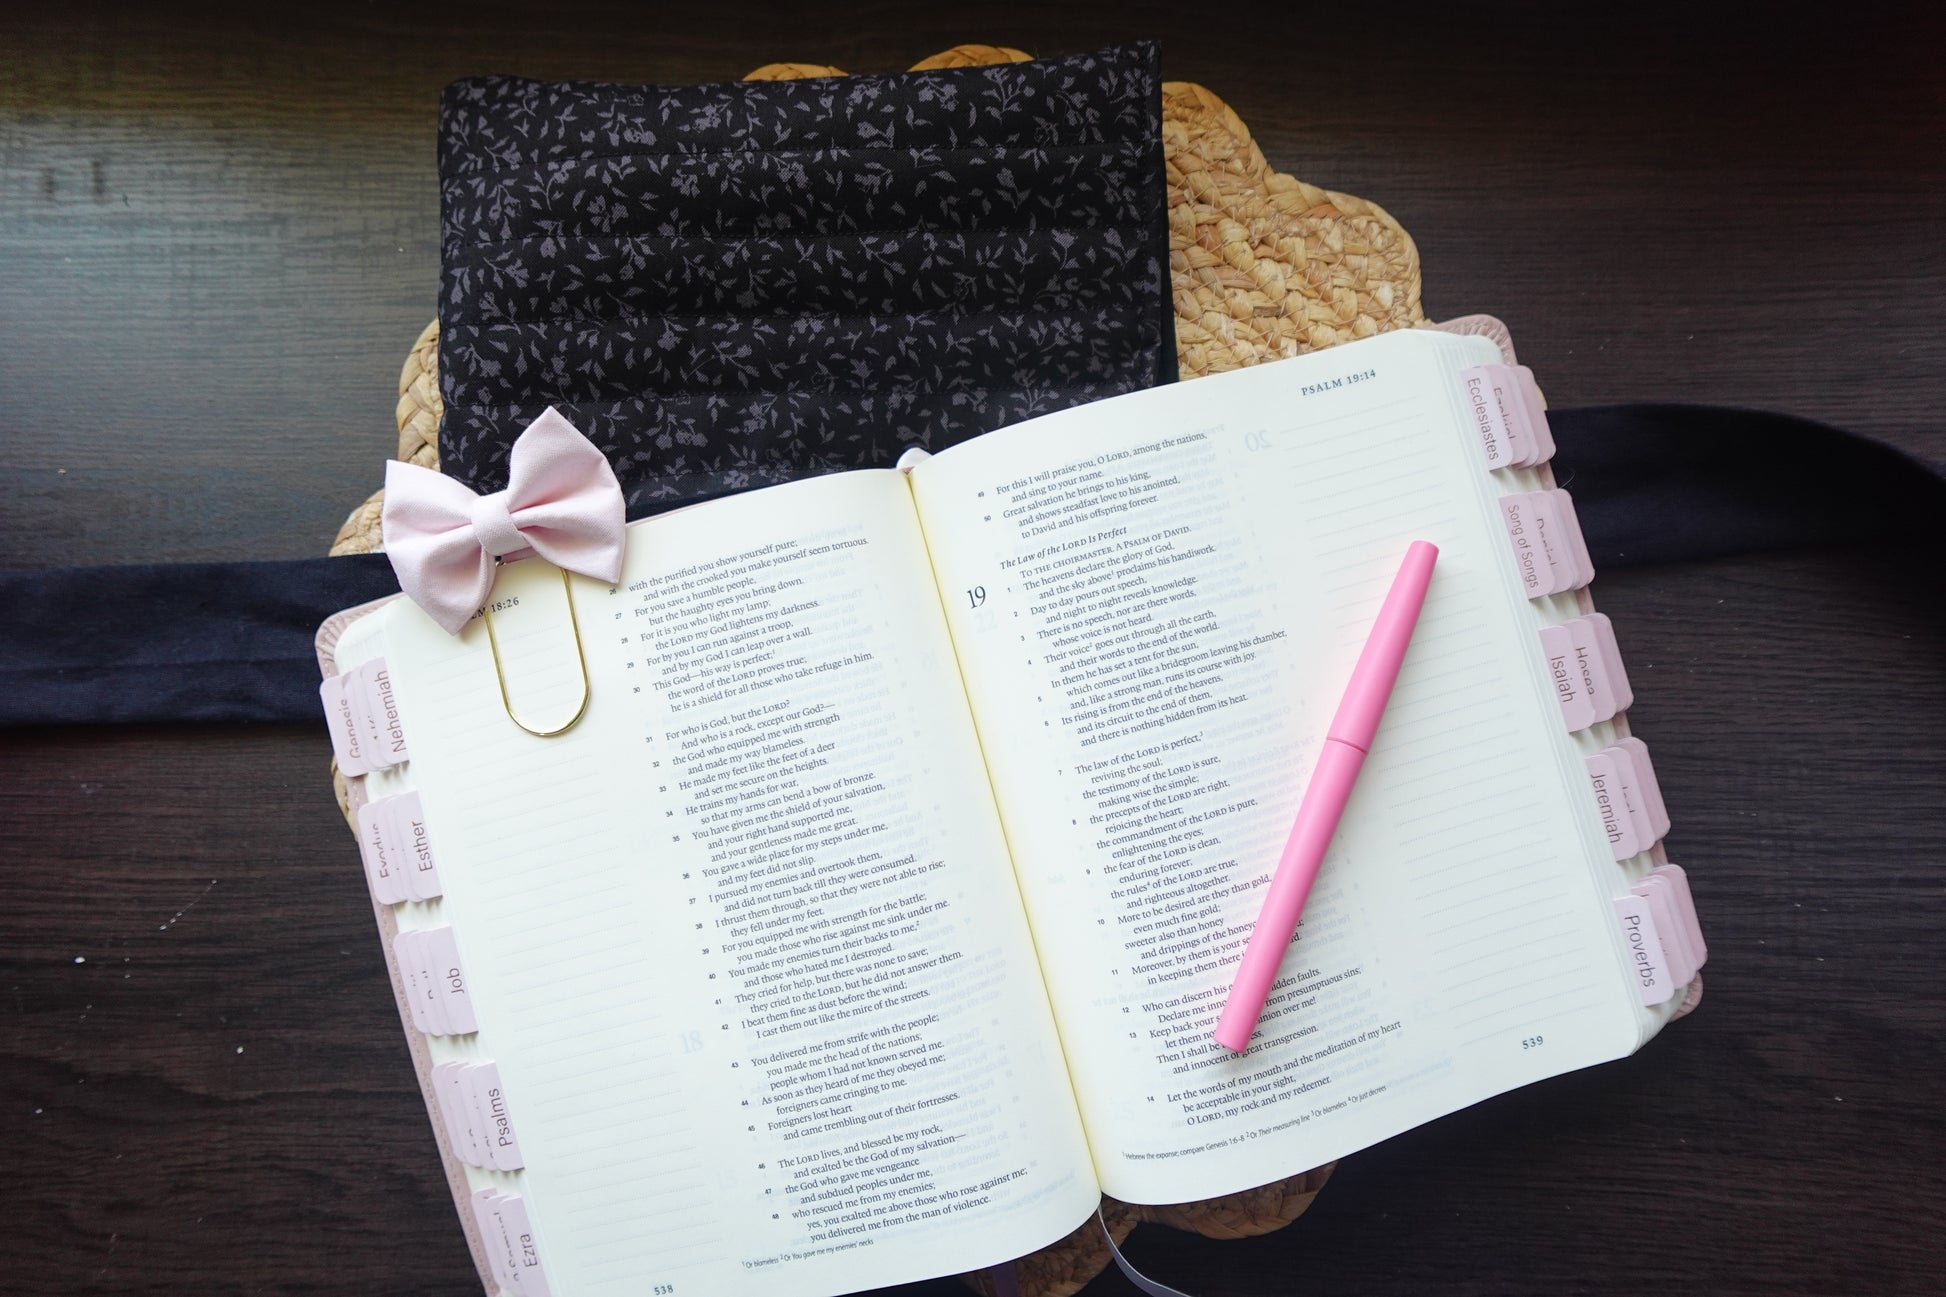 M 18:26
with the purified you show yourself pure;
and with the crooked you make yourself seem tortuous.
For you save a humble people,
27 but the haughty eyes you bring down.
28 For it is you who light my lamp;
the LORD my God lightens my darkness.
29 For by you I can run against a troop,
and by my God I can leap over a wall.
30 This God—his way is perfect;¹
the word of the LORD proves true;
he is a shield for all those who take refuge in him.
31 For who is God, but the LORD?
And who is a rock, except our God?—
32 the God who equipped me with strength
and made my way blameless.
33 He made my feet like the feet of a deer
and set me secure on the heights.
34 He trains my hands for war,
so that my arms can bend a bow of bronze.
35 You have given me the shield of your salvation,
and your right hand supported me,
and your gentleness made me great.
36 You gave a wide place for my steps under me,
and my feet did not slip.
37 I pursued my enemies and overtook them,
and did not turn back till they were consumed.
38 I thrust them through, so that they were not able to rise;
they fell under my feet.
39 For you equipped me with strength for the battle;
you made those who rise against me sink under me.
40 You made my enemies turn their backs to me,²
and those who hated me I destroyed.
41 They cried for help, but there was none to save;
they cried to the LORD, but he did not answer them.
42 I beat them fine as dust before the wind;
I cast them out like the mire of the streets.
43 You delivered me from strife with the people;
you made me the head of the nations;
people whom I had not known served me.
44 As soon as they heard of me they obeyed me;
foreigners came cringing to me.
45 Foreigners lost heart
and came trembling out of their fortresses.
46 The LORD lives, and blessed be my rock,
and exalted be the God of my salvation—
47 the God who gave me vengeance
and subdued peoples under me,
48 who rescued me from my enemies;
yes, you exalted me above those who rose against me;
you delivered me from the man of violence.
¹ Or blameless ² Or You gave me my enemies' necks
538
PSALM 19:14
49 For this I will praise you, O LORD, among the nations,
and sing to your name.
50 Great salvation he brings to his king,
and shows steadfast love to his anointed,
to David and his offspring forever.
The Law of the LORD Is Perfect
TO THE CHOIRMASTER. A PSALM OF DAVID.
19 1 The heavens declare the glory of God,
and the sky above¹ proclaims his handiwork.
2 Day to day pours out speech,
and night to night reveals knowledge.
3 There is no speech, nor are there words,
whose voice is not heard.
4 Their voice² goes out through all the earth,
and their words to the end of the world.
In them he has set a tent for the sun,
5 which comes out like a bridegroom leaving his chamber,
and, like a strong man, runs its course with joy.
6 Its rising is from the end of the heavens,
and its circuit to the end of them,
and there is nothing hidden from its heat.
7 The law of the LORD is perfect,³
reviving the soul;
the testimony of the LORD is sure,
making wise the simple;
8 the precepts of the LORD are right,
rejoicing the heart;
the commandment of the LORD is pure,
enlightening the eyes;
9 the fear of the LORD is clean,
enduring forever;
the rules⁴ of the LORD are true,
and righteous altogether.
10 More to be desired are they than gold,
even much fine gold;
sweeter also than honey
and drippings of the
11 Moreover, by them is your
in keeping them there
12 Who can discern his hidden faults.
Declare me from presumptuous sins;
13 Keep back your
let them over me!
Then I shall be
and innocent of great transgression.
14 Let the words of my mouth and the meditation of my heart
be acceptable in your sight,
O LORD, my rock and my redeemer.
¹ Hebrew the expanse; compare Genesis 1:6–8 ² Or Their measuring line ³ Or blameless ⁴ Or just decrees
539
Genesis
Nehemiah
Exodus
Esther
Job
Psalms
Ezra
Ecclesiastes
Song of Songs
Daniel
Isaiah
Hosea
Jeremiah
Proverbs